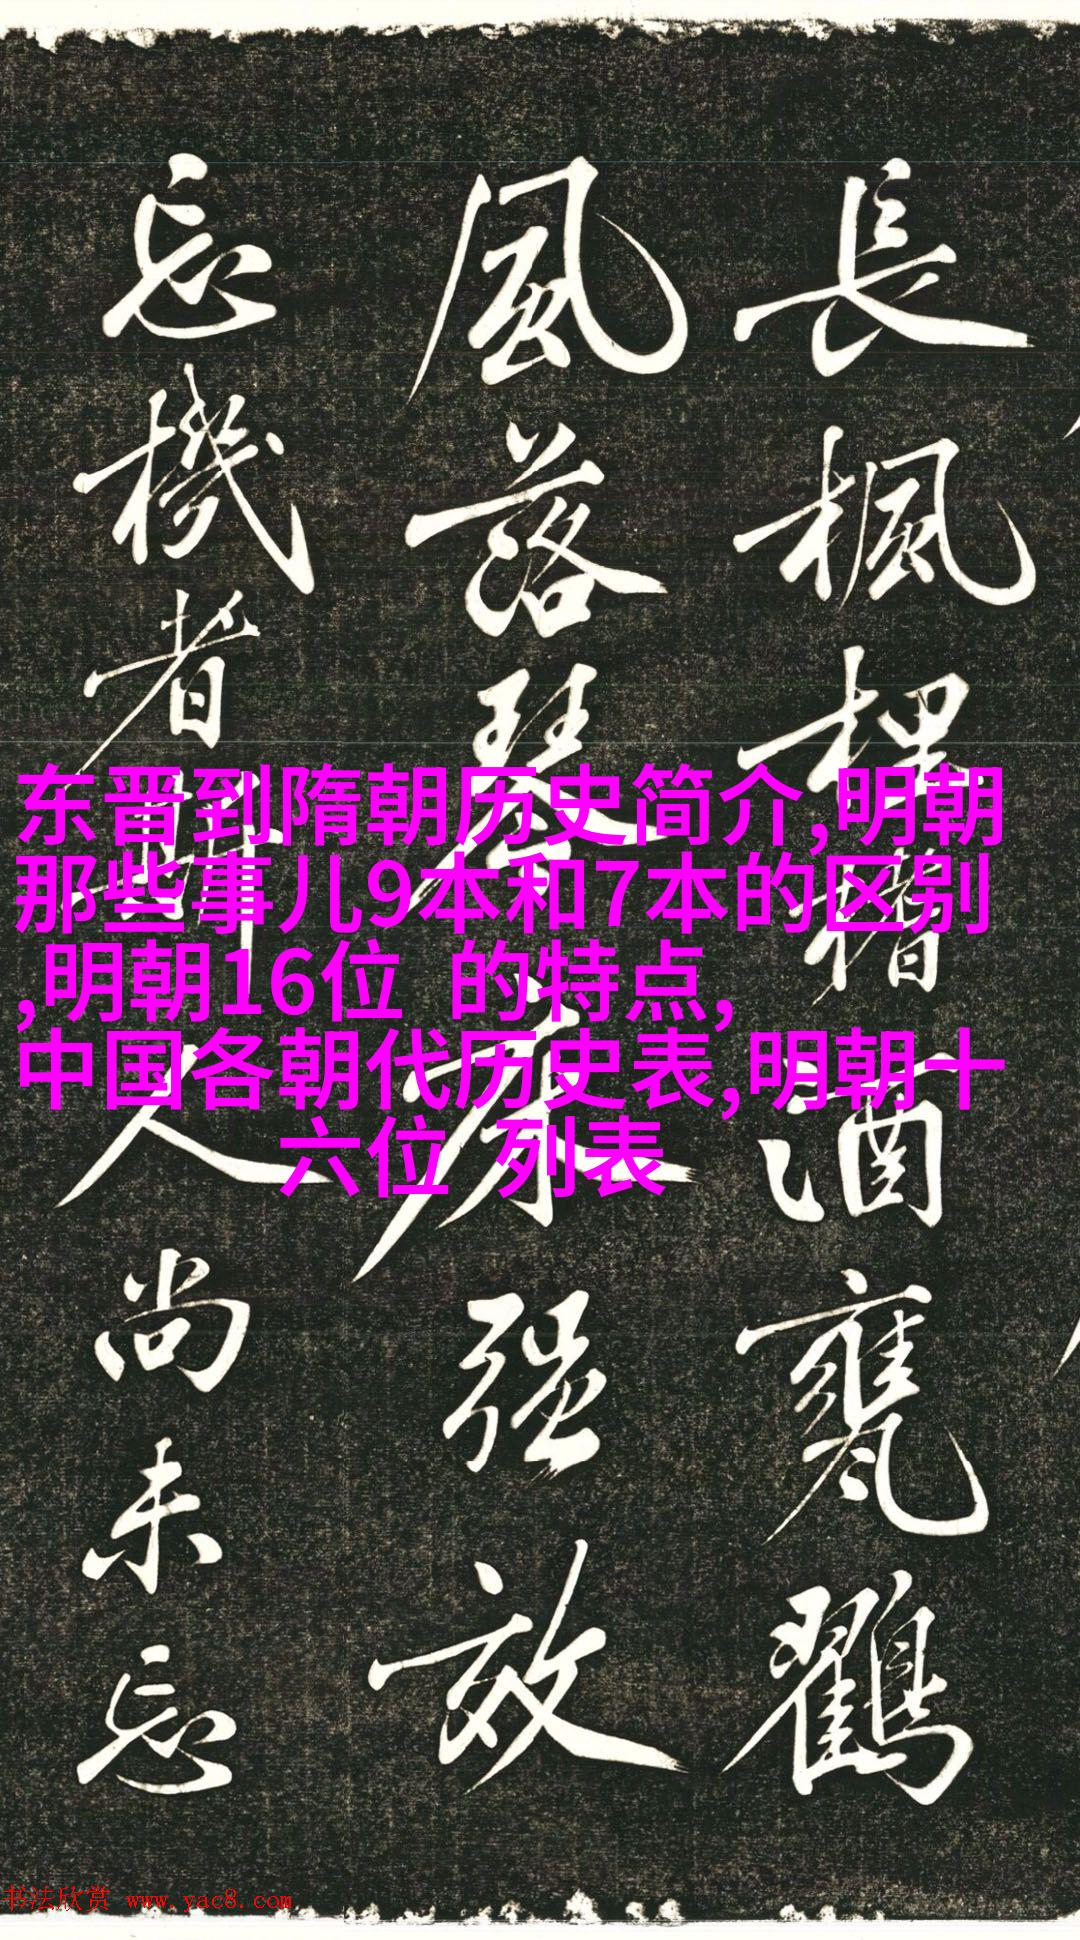 長楓酒甕
風落琴床强效
忘機者人尚未忘
东晋到隋朝历史简介,明朝
那些事儿9本和7本的区别
,明朝16位 的特点,
中国各朝代历史表,明朝十
六位 列表
书法欣赏 www.yac8.com